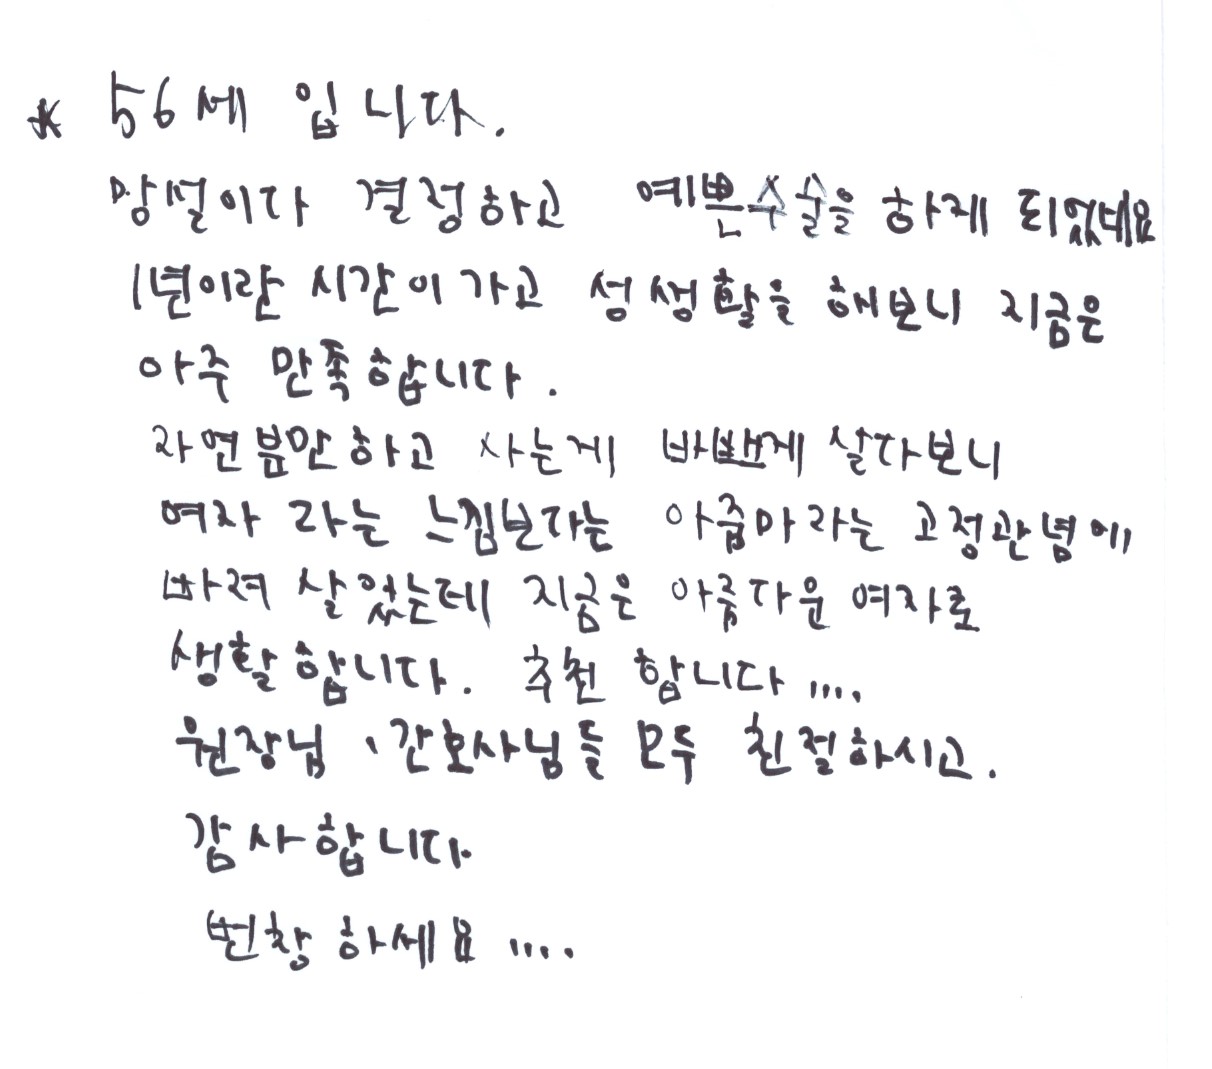 * 56세 입니다.
망설이다 결정하고 예쁜수술을 하게 되었네요
1년이란 시간이 가고 성생활을 해보니 지금은
아주 만족합니다.
자연분만하고 사는게 바쁘게 살다보니
여자 라는 느낌보다는 아줌마라는 고정관념에
바려 살았는데 지금은 아름다운 여자로
생활합니다. 추천 합니다....
원장님, 간호사님들 모두 친절하시고.
감사합니다
번창 하세요 ....